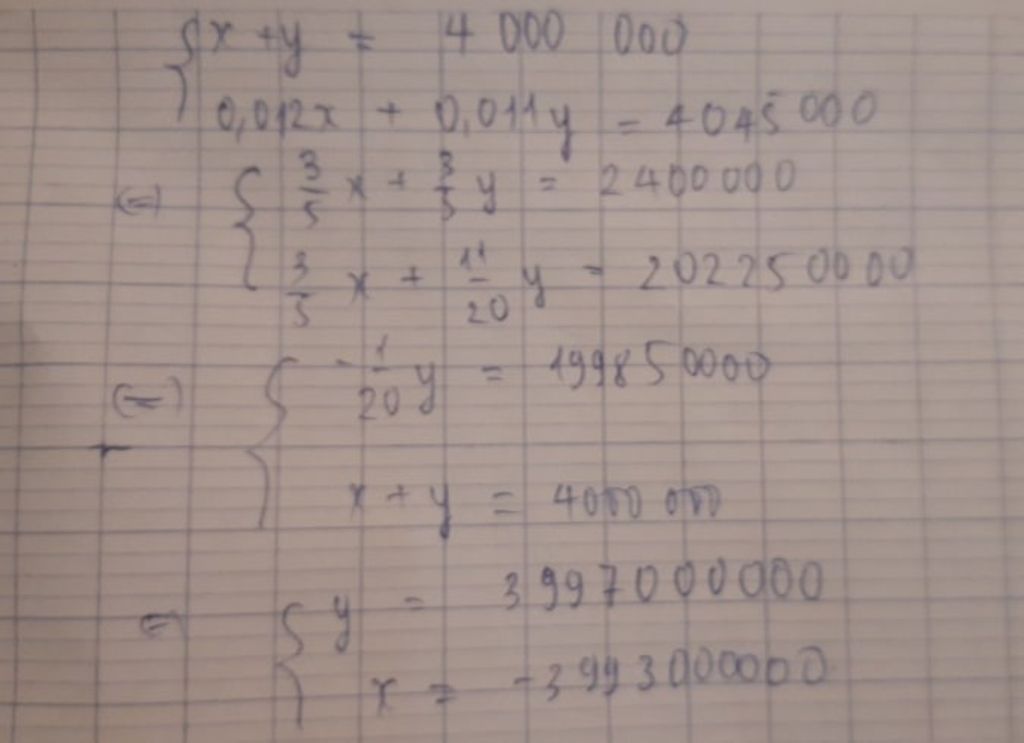 { x + y = 4 000 000
0,012x + 0,011y = 4045 000
(=) { 3/5 x + 3/5 y = 2400000
3/5 x + 11/20 y = 202250000
(=) { -1/20 y = 199850000
x + y = 4000 000
= { y = 3997000000
x = -3993000000